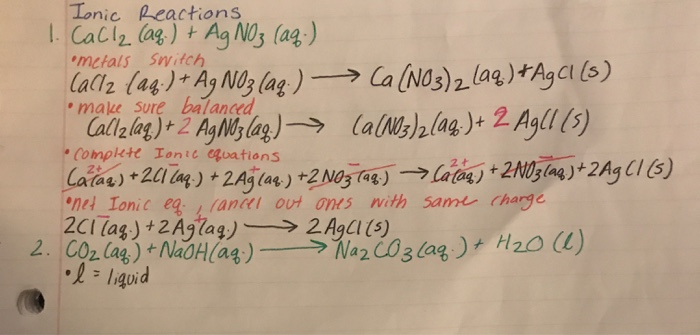 Ionic Reactions
1. CaCl2 (aq.) + AgNO3 (aq.)
•metals switch
CaCl2 (aq.) + AgNO3 (aq.) → Ca(NO3)2 (aq.) + AgCl (s)
•make sure balanced
CaCl2 (aq.) + 2 AgNO3 (aq.) → Ca(NO3)2 (aq.) + 2 AgCl (s)
•complete Ionic equations
Ca²⁺(aq.) + 2Cl⁻(aq.) + 2Ag⁺(aq.) + 2NO3⁻(aq.) → Ca²⁺(aq.) + 2NO3⁻(aq.) + 2AgCl (s)
•net Ionic eq., cancel out ones with same charge
2Cl⁻(aq.) + 2Ag⁺(aq.) → 2AgCl (s)
2. CO2 (aq.) + NaOH (aq.) → Na2CO3 (aq.) + H2O (l)
•l = liquid